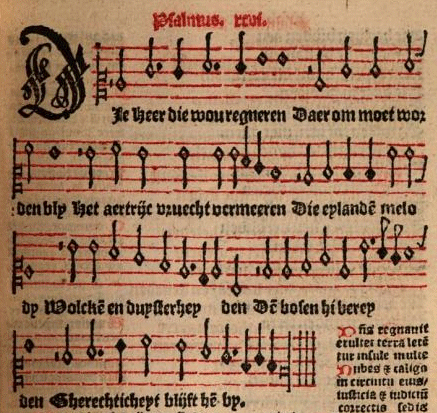 Psalmus. xcvi.
DIe Heer die wou regneren Daer om moet wor
den bly Het aertrijc vruecht vermeeren Die eylandē melo
dy Wolckē en duysterhey den Dē bosen hi berey
den Gherechticheyt blijft hē by.
Dn̄s regnauit
exultet terra letē
tur insule multe
Nubes & caligo
in circuitu eius/
iusticia & iudiciū
correctio sedis